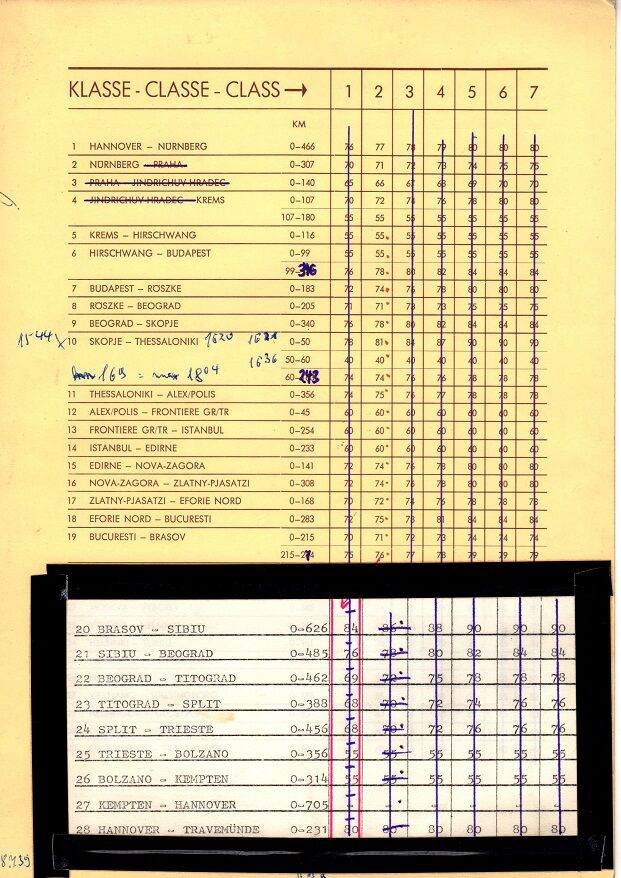 KLASSE - CLASSE - CLASS → 1 2 3 4 5 6 7
KM
1 HANNOVER – NÜRNBERG 0–466 76 77 78 79 80 80 80
2 NÜRNBERG – PRAHA 0–307 70 71 72 73 74 75 75
3 PRAHA – JINDRICHUV HRADEC 0–140 65 66 67 68 69 70 70
4 JINDRICHUV HRADEC – KREMS 0–107 70 72 74 76 78 80 80
107–180 55 55 55 55 55 55 55
5 KREMS – HIRSCHWANG 0–116 55 55 55 55 55 55 55
6 HIRSCHWANG – BUDAPEST 0–99 55 55 55 55 55 55 55
99–316 76 78 80 82 84 84 84
7 BUDAPEST – RÖSZKE 0–183 72 74 76 78 80 80 80
8 RÖSZKE – BEOGRAD 0–205 71 71 73 73 75 75 75
9 BEOGRAD – SKOPJE 0–340 76 78 80 82 80 80 80
1544 10 SKOPJE – THESSALONIKI 1620 0–50 78 81 84 87 90 90 90
1636 50–60 40 40 40 40 40 40 40
1804 60–243 74 74 76 76 78 78 78
11 THESSALONIKI – ALEX/POLIS 0–356 74 75 76 77 78 78 78
12 ALEX/POLIS – FRONTIERE GR/TR 0–45 60 60 60 60 60 60 60
13 FRONTIERE GR/TR – ISTANBUL 0–254 60 60 60 60 60 60 60
14 ISTANBUL – EDIRNE 0–233 60 60 60 60 60 60 60
15 EDIRNE – NOVA-ZAGORA 0–141 72 74 76 78 80 80 80
16 NOVA-ZAGORA – ZLATNY-PJASATZI 0–308 72 74 76 78 80 80 80
17 ZLATNY-PJASATZI – EFORIE NORD 0–168 70 72 74 76 78 78 78
18 EFORIE NORD – BUCURESTI 0–283 72 75 78 81 84 84 84
19 BUCURESTI – BRASOV 0–215 70 71 72 73 74 74 74
75 76 77 78 79 79 79
20 BRASOV - SIBIU 0-626 84 86 88 90 90 90
21 SIBIU - BEOGRAD 0-485 76 78 80 82 84 84
22 BEOGRAD - TITOGRAD 0-462 69 72 75 78 78 78
23 TITOGRAD - SPLIT 0-388 68 70 72 74 76 76
24 SPLIT - TRIESTE 0-456 68 70 72 76 76 76
25 TRIESTE - BOLZANO 0-356 55 55 55 55 55 55
26 BOLZANO - KEMPTEN 0-314 55 55 55 55 55 55
27 KEMPTEN - HANNOVER 0-705 - - - - - -
28 HANNOVER - TRAVEMÜNDE 0-231 80 80 80 80 80 80